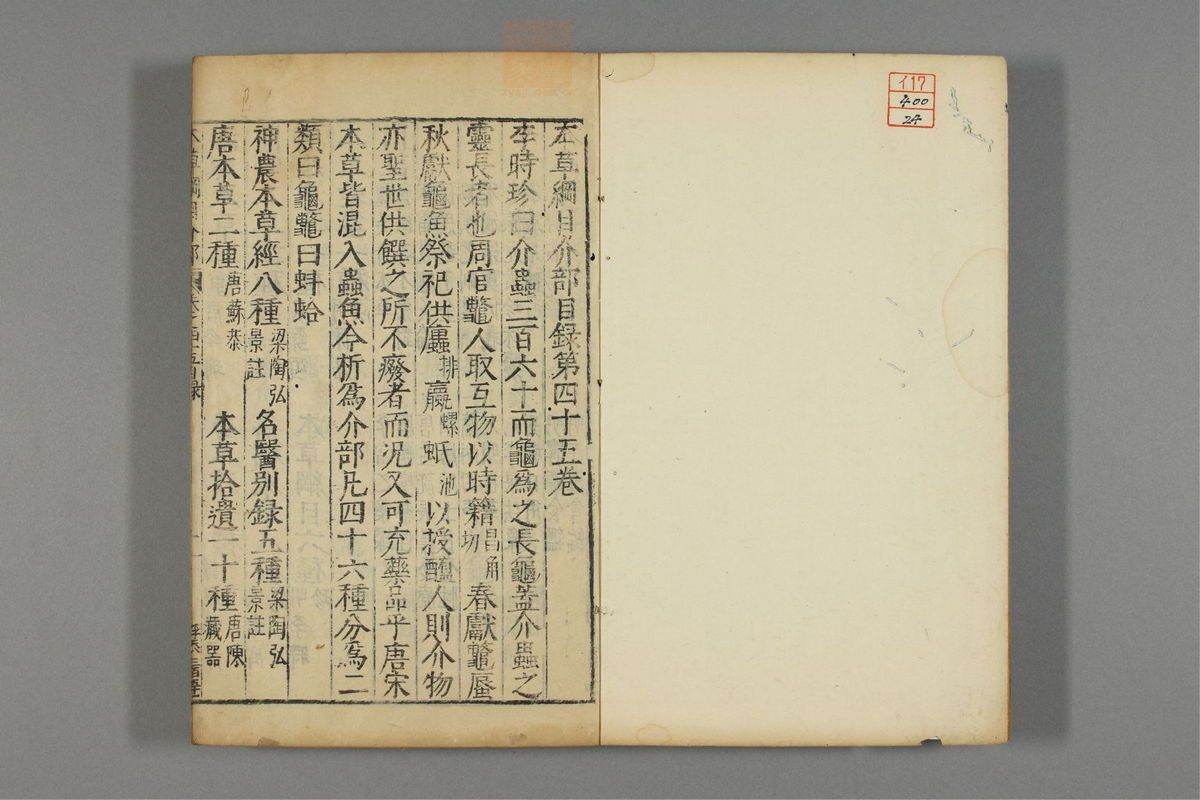 117
400
24
本草綱目介部目録第四十五卷
李時珍曰介蟲三百六十而龜爲之長龜蓋介蟲之
靈長者也周官鼈人取互物以時籍昌角切春獻鼈蜃
秋獻龜魚祭祀供蠯排蠃螺蚳池以授醢人則介物
亦聖世供饌之所不廢者而况又可充藥品乎唐宋
本草皆混入蟲魚今析爲介部凡四十六種分爲二
類曰龜鼈曰蚌蛤
神農本草經八種梁陶弘景註 名醫别録五種梁陶弘景註
唐本草二種唐蘇恭 本草拾遺一十種唐陳藏器